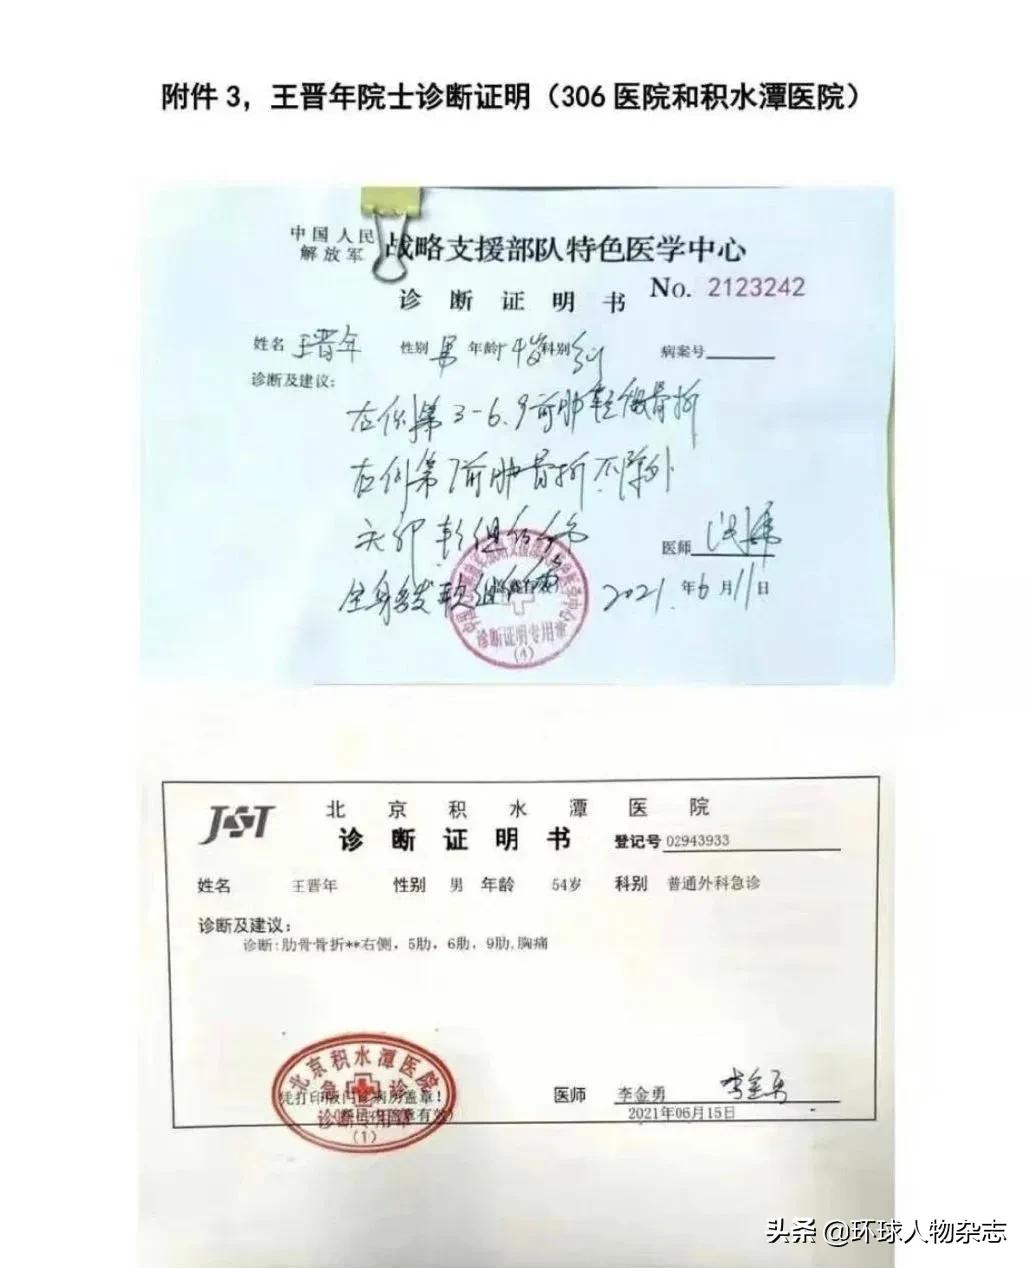 附件 3，王晋年院士诊断证明（306 医院和积水潭医院）
中国人民解放军 战略支援部队特色医学中心
诊断证明书 No. 2123242
姓名 王晋年 性别 男 年龄 54岁 科别 病案号
诊断及建议：
右侧第3-6.9前肋轻微骨折
右侧第7前肋骨折不除外
头部软组织
全身多发软组织
医师
2021年6月11日
诊断证明专用章
(4)
JST 北京积水潭医院
诊断证明书 登记号 02943933
姓名 王晋年 性别 男 年龄 54岁 科别 普通外科急诊
诊断及建议：
诊断:肋骨骨折**右侧，5肋，6肋，9肋,胸痛
北京积水潭医院
急诊
诊断专用章
(1)
医师 李金勇 李金勇
2021年06月15日
头条 @环球人物杂志